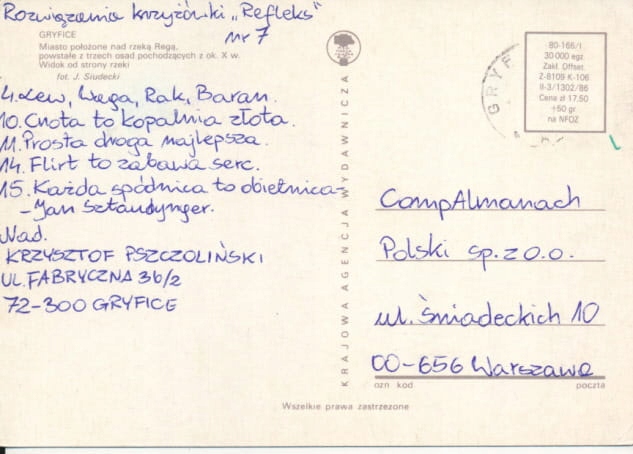 Rozwiązania krzyżówki „Refleks"
nr 7
GRYFICE
Miasto położone nad rzeką Regą,
powstałe z trzech osad pochodzących z ok. X w.
Widok od strony rzeki
fot. J. Siudecki
4. Lew, Waga, Rak, Baran.
10. Cnota to kopalnia złota.
11. Prosta droga najlepsza.
14. Flirt to zabawa serc.
15. Każda spódnica to obietnica-
-Jan Sztaudynger.
Nad.
KRZYSZTOF PSZCZOLIŃSKI
UL. FABRYCZNA 36/2
72-300 GRYFICE
KRAJOWA AGENCJA WYDAWNICZA
GRYF
80-166/I
30 000 egz.
Zakł. Offset.
Z-8109 K-106
II-3/1302/86
Cena zł 17,50
+50 gr
na NFOZ
CompAlmanach
Polski sp. z o.o.
ul. Śniadeckich 10
00-656 Warszawa
ozn kod
poczta
Wszelkie prawa zastrzeżone